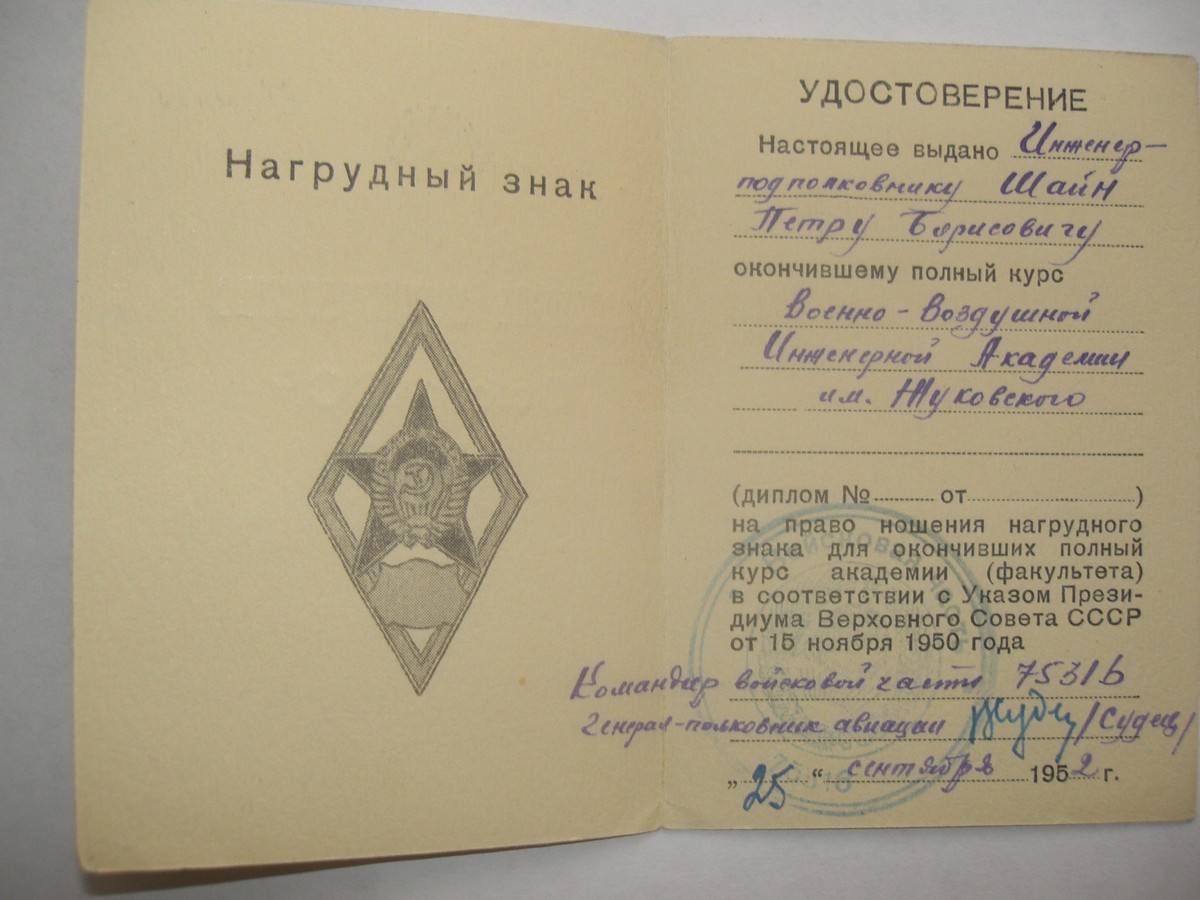 Нагрудный знак
УДОСТОВЕРЕНИЕ
Настоящее выдано Инженер-
подполковнику Шайн
Петру Борисовичу
окончившему полный курс
Военно-Воздушной
Инженерной Академии
им. Жуковского
(диплом № от )
на право ношения нагрудного
знака для окончивших полный
курс академии (факультета)
в соответствии с Указом Прези-
диума Верховного Совета СССР
от 15 ноября 1950 года
Командир войсковой части 75316
Генерал-полковник авиации /Судец/
„25“ сентября 1952 г.